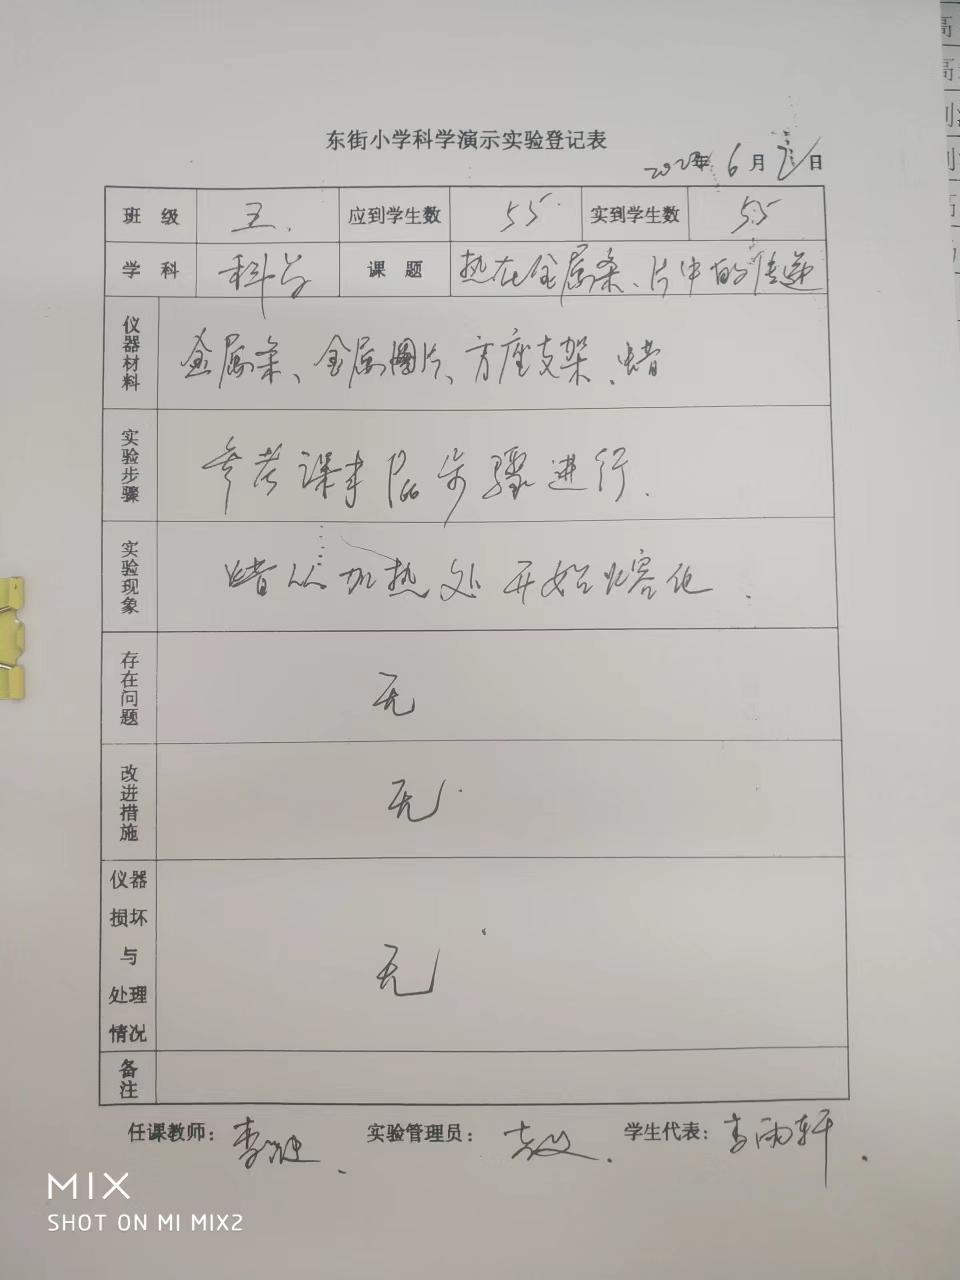 东街小学科学演示实验登记表
年 6月 日
班 级 五. 应到学生数 55 实到学生数 55
学 科 科学 课 题 热在金属条、片中的传递
仪器材料 金属条、金属圆片、方座支架、蜡
实验步骤 参考课本 步骤进行.
实验现象 蜡从加热处开始熔化.
存在问题 无
改进措施 无
仪器损坏与处理情况 无
备注
任课教师: 李 实验管理员: 学生代表: 李雨轩
MIX
SHOT ON MI MIX2